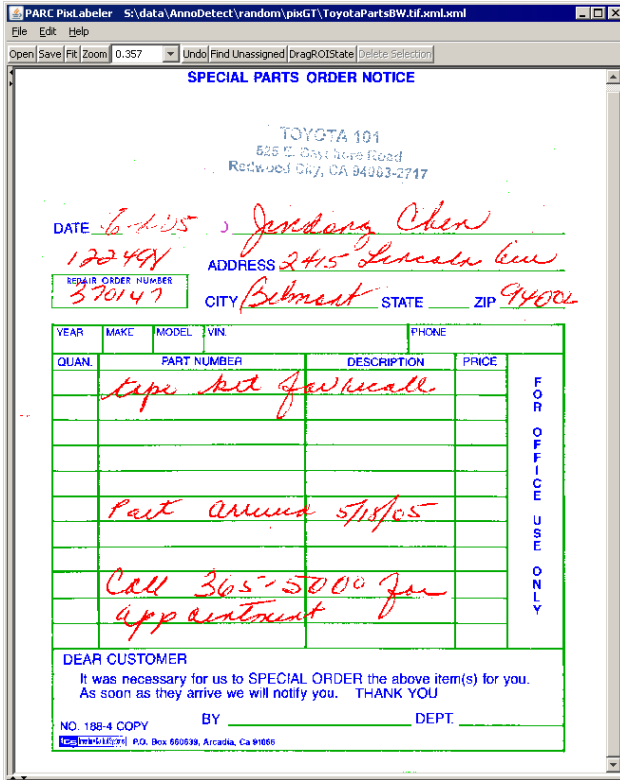 PARC PixLabeler S:\data\AnnoDetect\random\pixGT\ToyotaPartsBW.tif.xml.xml
File Edit Help
Open Save Fit Zoom 0.357 Undo Find Unassigned DragROIState Delete Selection
SPECIAL PARTS ORDER NOTICE
TOYOTA 101
525 E. Bayshore Road
Redwood City, CA 94063-2717
DATE 6-1-05 Jindong Chen
12249Y ADDRESS 2415 Lincoln Ave
REPAIR ORDER NUMBER
370147 CITY Belmont STATE ZIP 94002
YEAR MAKE MODEL VIN. PHONE
QUAN. PART NUMBER DESCRIPTION PRICE
tape kit for recall
Part arrived 5/18/05
Call 365-5000 for
appointment
FOR OFFICE USE ONLY
DEAR CUSTOMER
It was necessary for us to SPECIAL ORDER the above item(s) for you.
As soon as they arrive we will notify you. THANK YOU
NO. 188-4 COPY BY DEPT.
P.O. Box 660639, Arcadia, Ca 91066